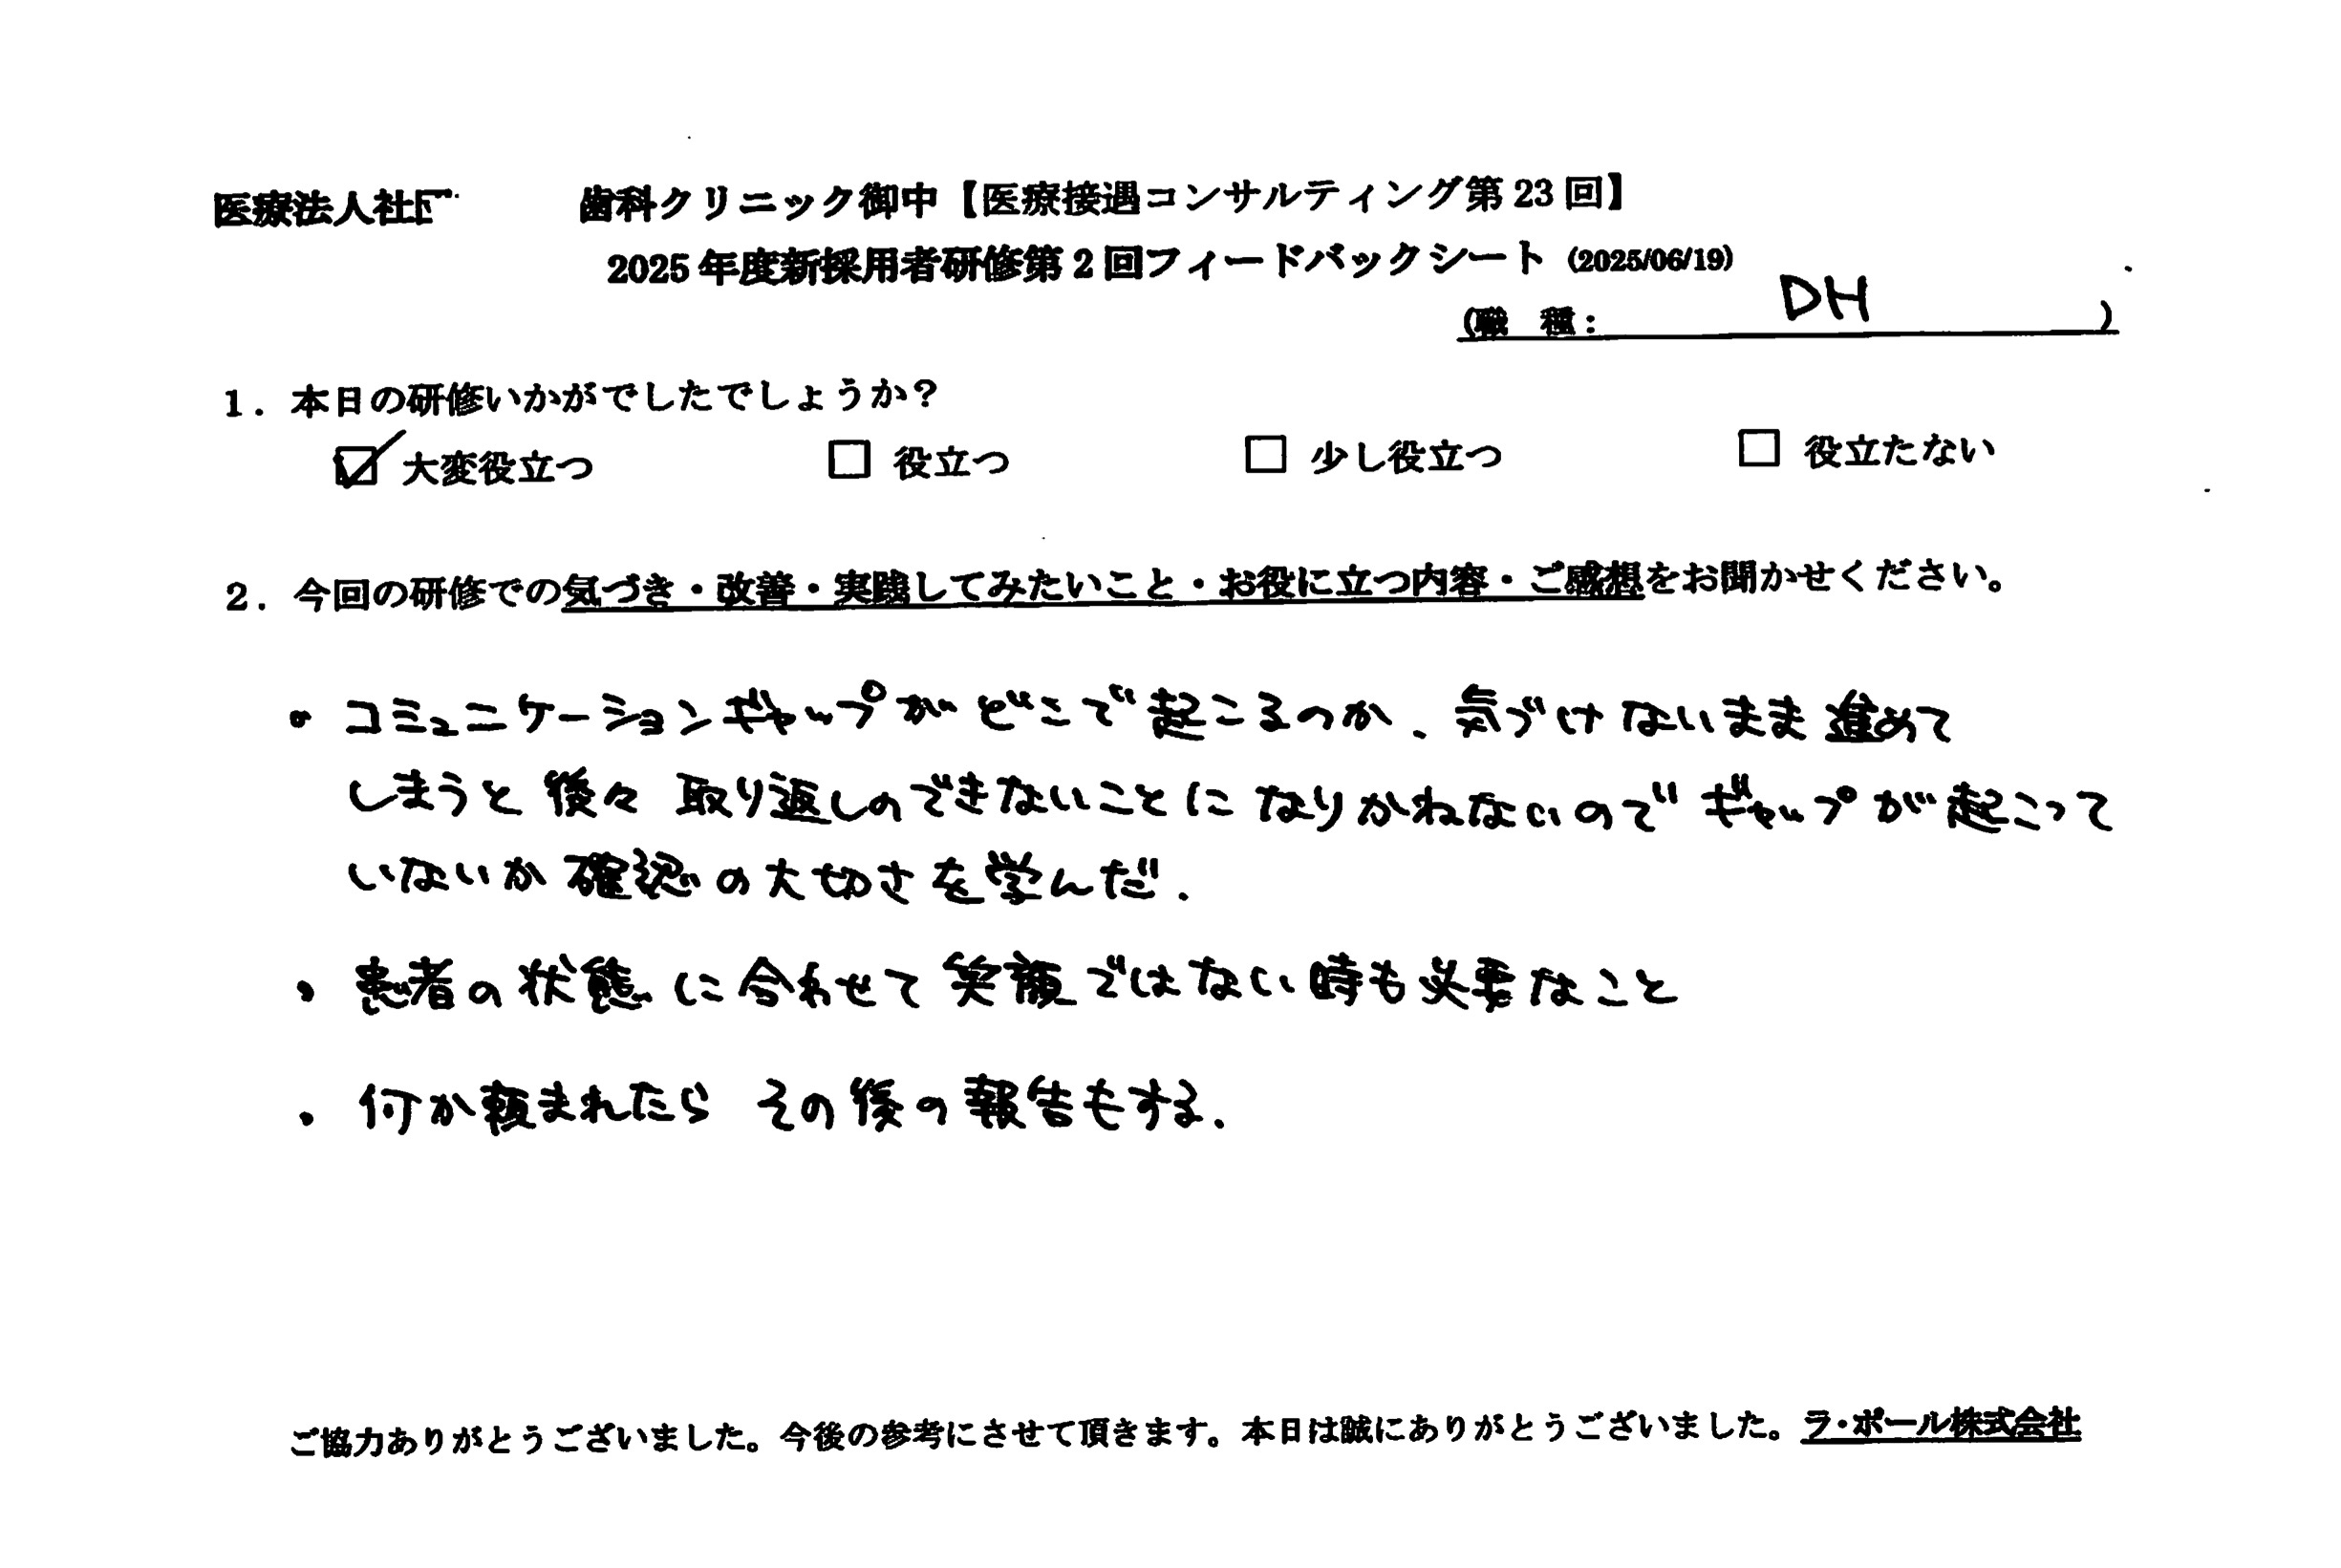 医療法人社 歯科クリニック御中【医療接遇コンサルティング第23回】
2025年度新採用者研修第2回フィードバックシート (2025/06/19)
(職 種: DH )
1. 本日の研修いかがでしたでしょうか?
☑ 大変役立つ □ 役立つ □ 少し役立つ □ 役立たない
2. 今回の研修での気づき・改善・実践してみたいこと・お役に立つ内容・ご感想をお聞かせください。
• コミュニケーションギャップがどこで起こるのか、気づけないまま進めて
しまうと後々取り返しのできないことになりかねないのでギャップが起こって
いないか確認の大切さを学んだ.
• 患者の状態に合わせて笑顔ではない時も必要なこと
• 何か頼まれたら その後の報告もする.
ご協力ありがとうございました。今後の参考にさせて頂きます。本日は誠にありがとうございました。ラ・ポール株式会社